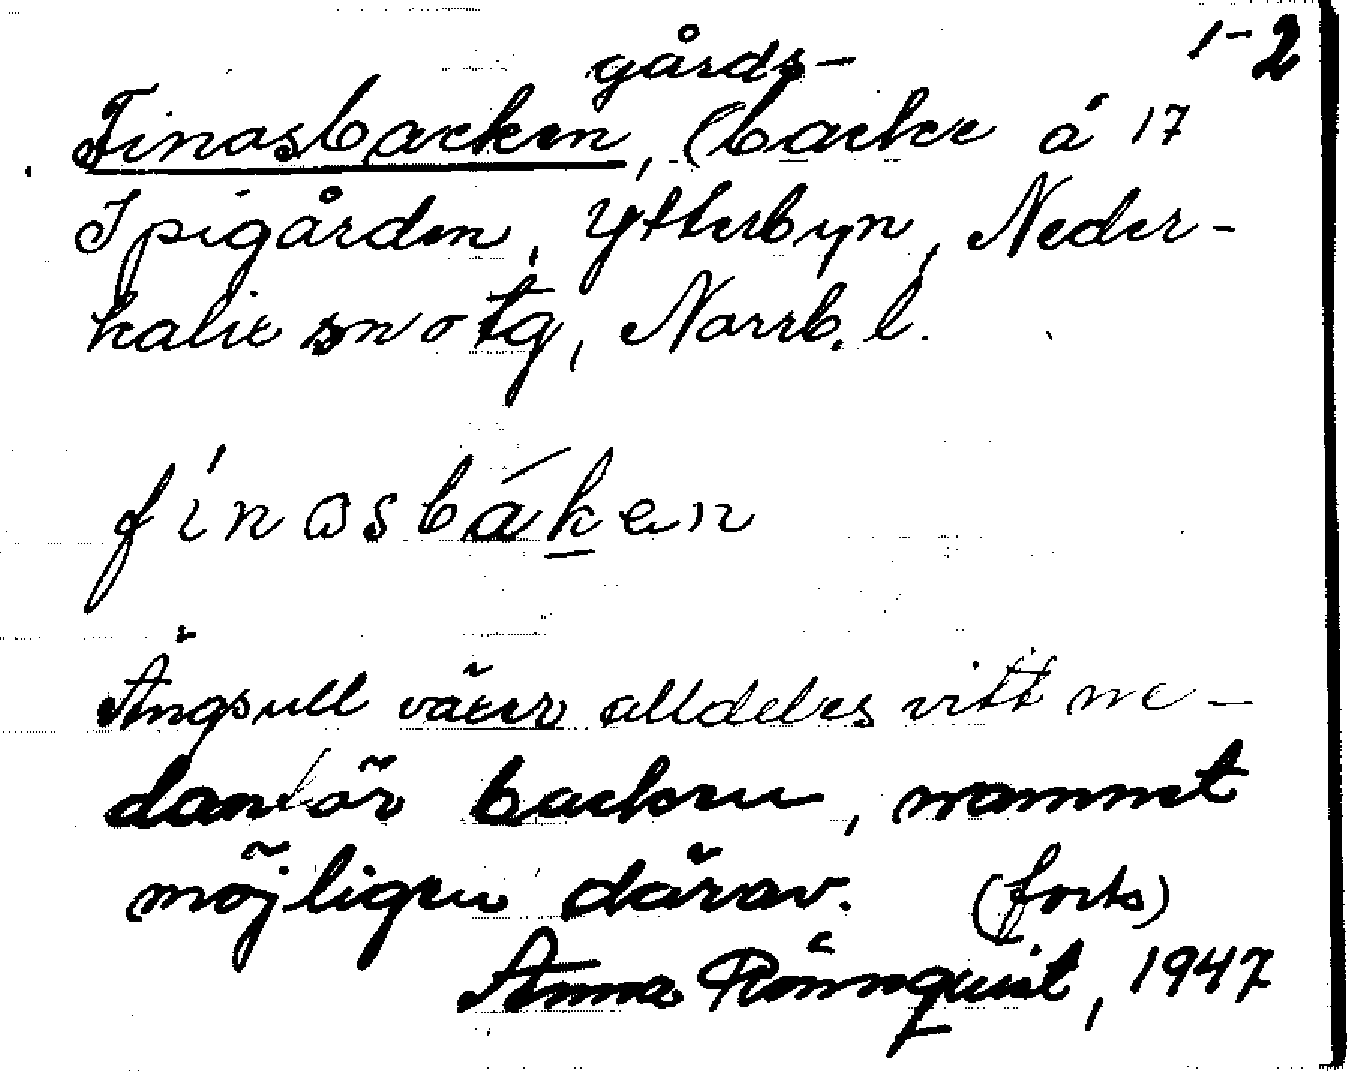 1-2
gårds-
Finasbacken, (backe å 17
Ipigården, Ytterbyn, Neder-
kalix sn o tg, Norrb. l.
finasbáken
Ängsull växer alldeles vitt ne-
danför backen, namnet
möjligen därav. (forts)
Anna Rönnquist, 1947